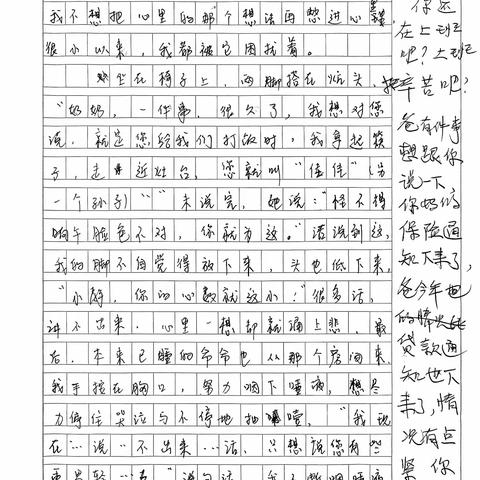 我不想把心里的那个想法再憋进心里,
很小以来,我都被它困扰着。
坐在椅子上,两脚搭在炕头,
“奶奶,一件事,很久了,我想对您
说,就是您给我们打饭时,我拿起筷
子,走近灶台,您就叫“佳佳”(另
一个孙子)”“未说完,她说:“怪不得
晌午脸色不对,你就为这。”话说到这,
我的脚不自觉得放下来,头也低下来,
“小静,你的心数就这小!”很多话,
讲不出来,心里一想却就涌上悲,最
后,本来已睡的爷爷也从那个房间来,
我手按在胸口,努力咽下唾液,想尽
力停住哭泣与不停地抽噎,“我现
在…说…不出来…话,只想说您有些
你还
在上班
吧?上班
辛苦吧?
爸有件事
想跟你
说一下
你妈的
保险通
知下来了,
爸今年也
的
贷款通
知也下
来了,情
况有点
紧 你